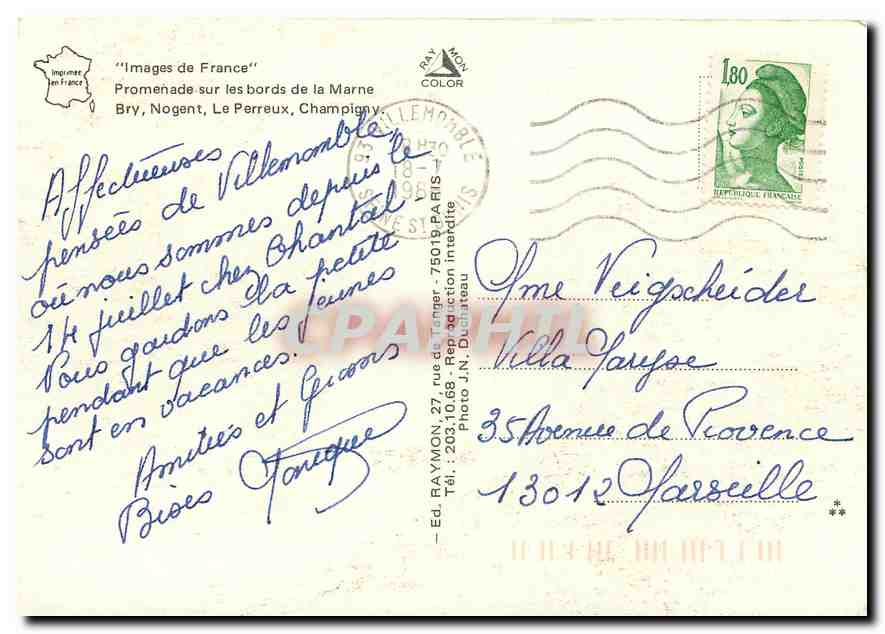 Imprimée
en France
"Images de France"
Promenade sur les bords de la Marne
Bry, Nogent, Le Perreux, Champigny
RAY MON
COLOR
93 VILLEMOMBLE
18-7
198
SEINE ST
1,80
POSTES
REPUBLIQUE FRANÇAISE
Affectueuses
pensées de Villemomble,
où nous sommes depuis le
14 juillet chez Chantal.
Nous gardons la petite
pendant que les jeunes
sont en vacances.
Amitiés et
Bises
— Ed. RAYMON, 27, rue de Tanger - 75019 PARIS —
Tél. : 203.10.68 - Reproduction interdite
Photo J.N. Duchateau
Mme Veigscheider
Villa Maryse
35 Avenue de Provence
13012 Marseille
*
**
CPARHTL